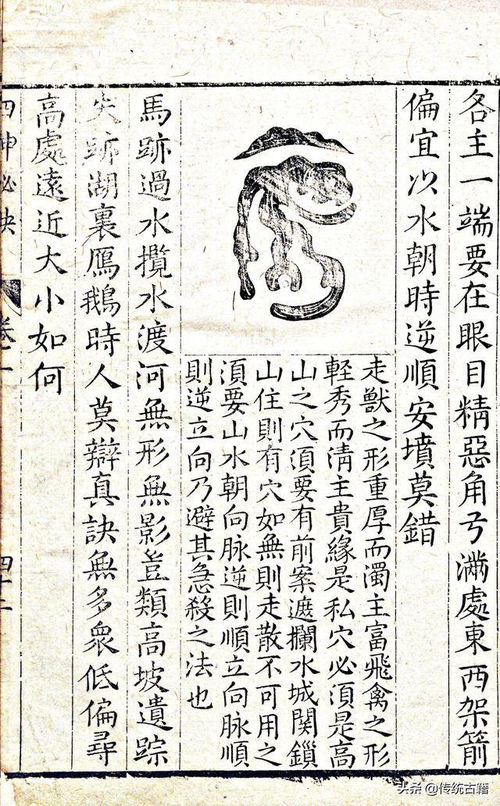 各主一端要在眼目精惡角弓滿處東西架箭
偏宜以水朝時逆順安墳莫錯
走獸之形重厚而濁主富飛禽之形
輕秀而清主貴緣是私穴必須是高
山之穴須要有前案遮攔水城関鎖
山住則有穴如無則走散不可用之
須要山水朝向脉逆則順立向脉順
則逆立向乃避其急殺之法也
馬跡過水攬水渡河無形無影豈類高坡遺踪
失跡湖裏鴈鵝時人莫辯真訣無多衆低偏尋
高處遠近大小如何
四神必決
卷一
四十二
头条 @传统古籍